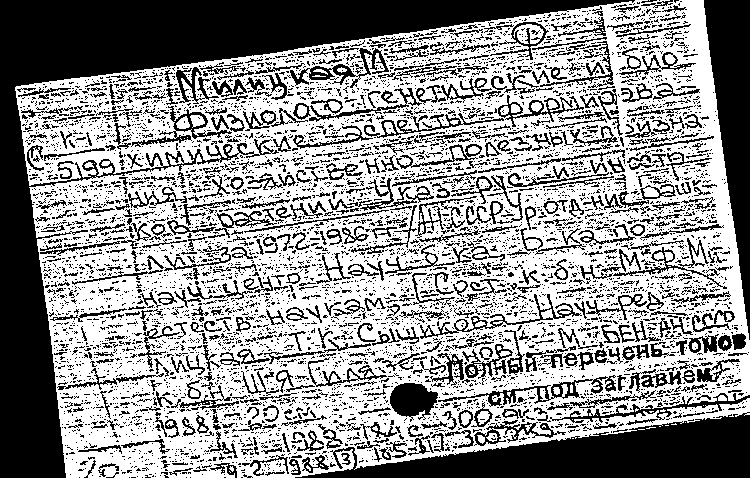 Милицкая М
Физиолого-генетические и био-
К-1 химические аспекты формирова-
5199 ния хозяйственно полезных призна-
ков растений. Указ. рус. и иностр.
лит. за 1972-1986 гг. / АН СССР. Ур. отд-ние. Башк.
науч. центр. Науч. б-ка. Б-ка по
естеств. наукам; [Сост.: к.б.н. М.Ф. Ми-
лицкая, Т.К. Сыщикова. Науч. ред.
к.б.н. Ш.Я. Гилязетдинов]. - М.: БЕН АН СССР
Полный перечень томов
1988. - 20 см.
см. под заглавием
Ч. 1. 1988. 184 с. 300 экз. см. след. карт.
Ч. 2. 1988 (3). 185-317. 300 экз.